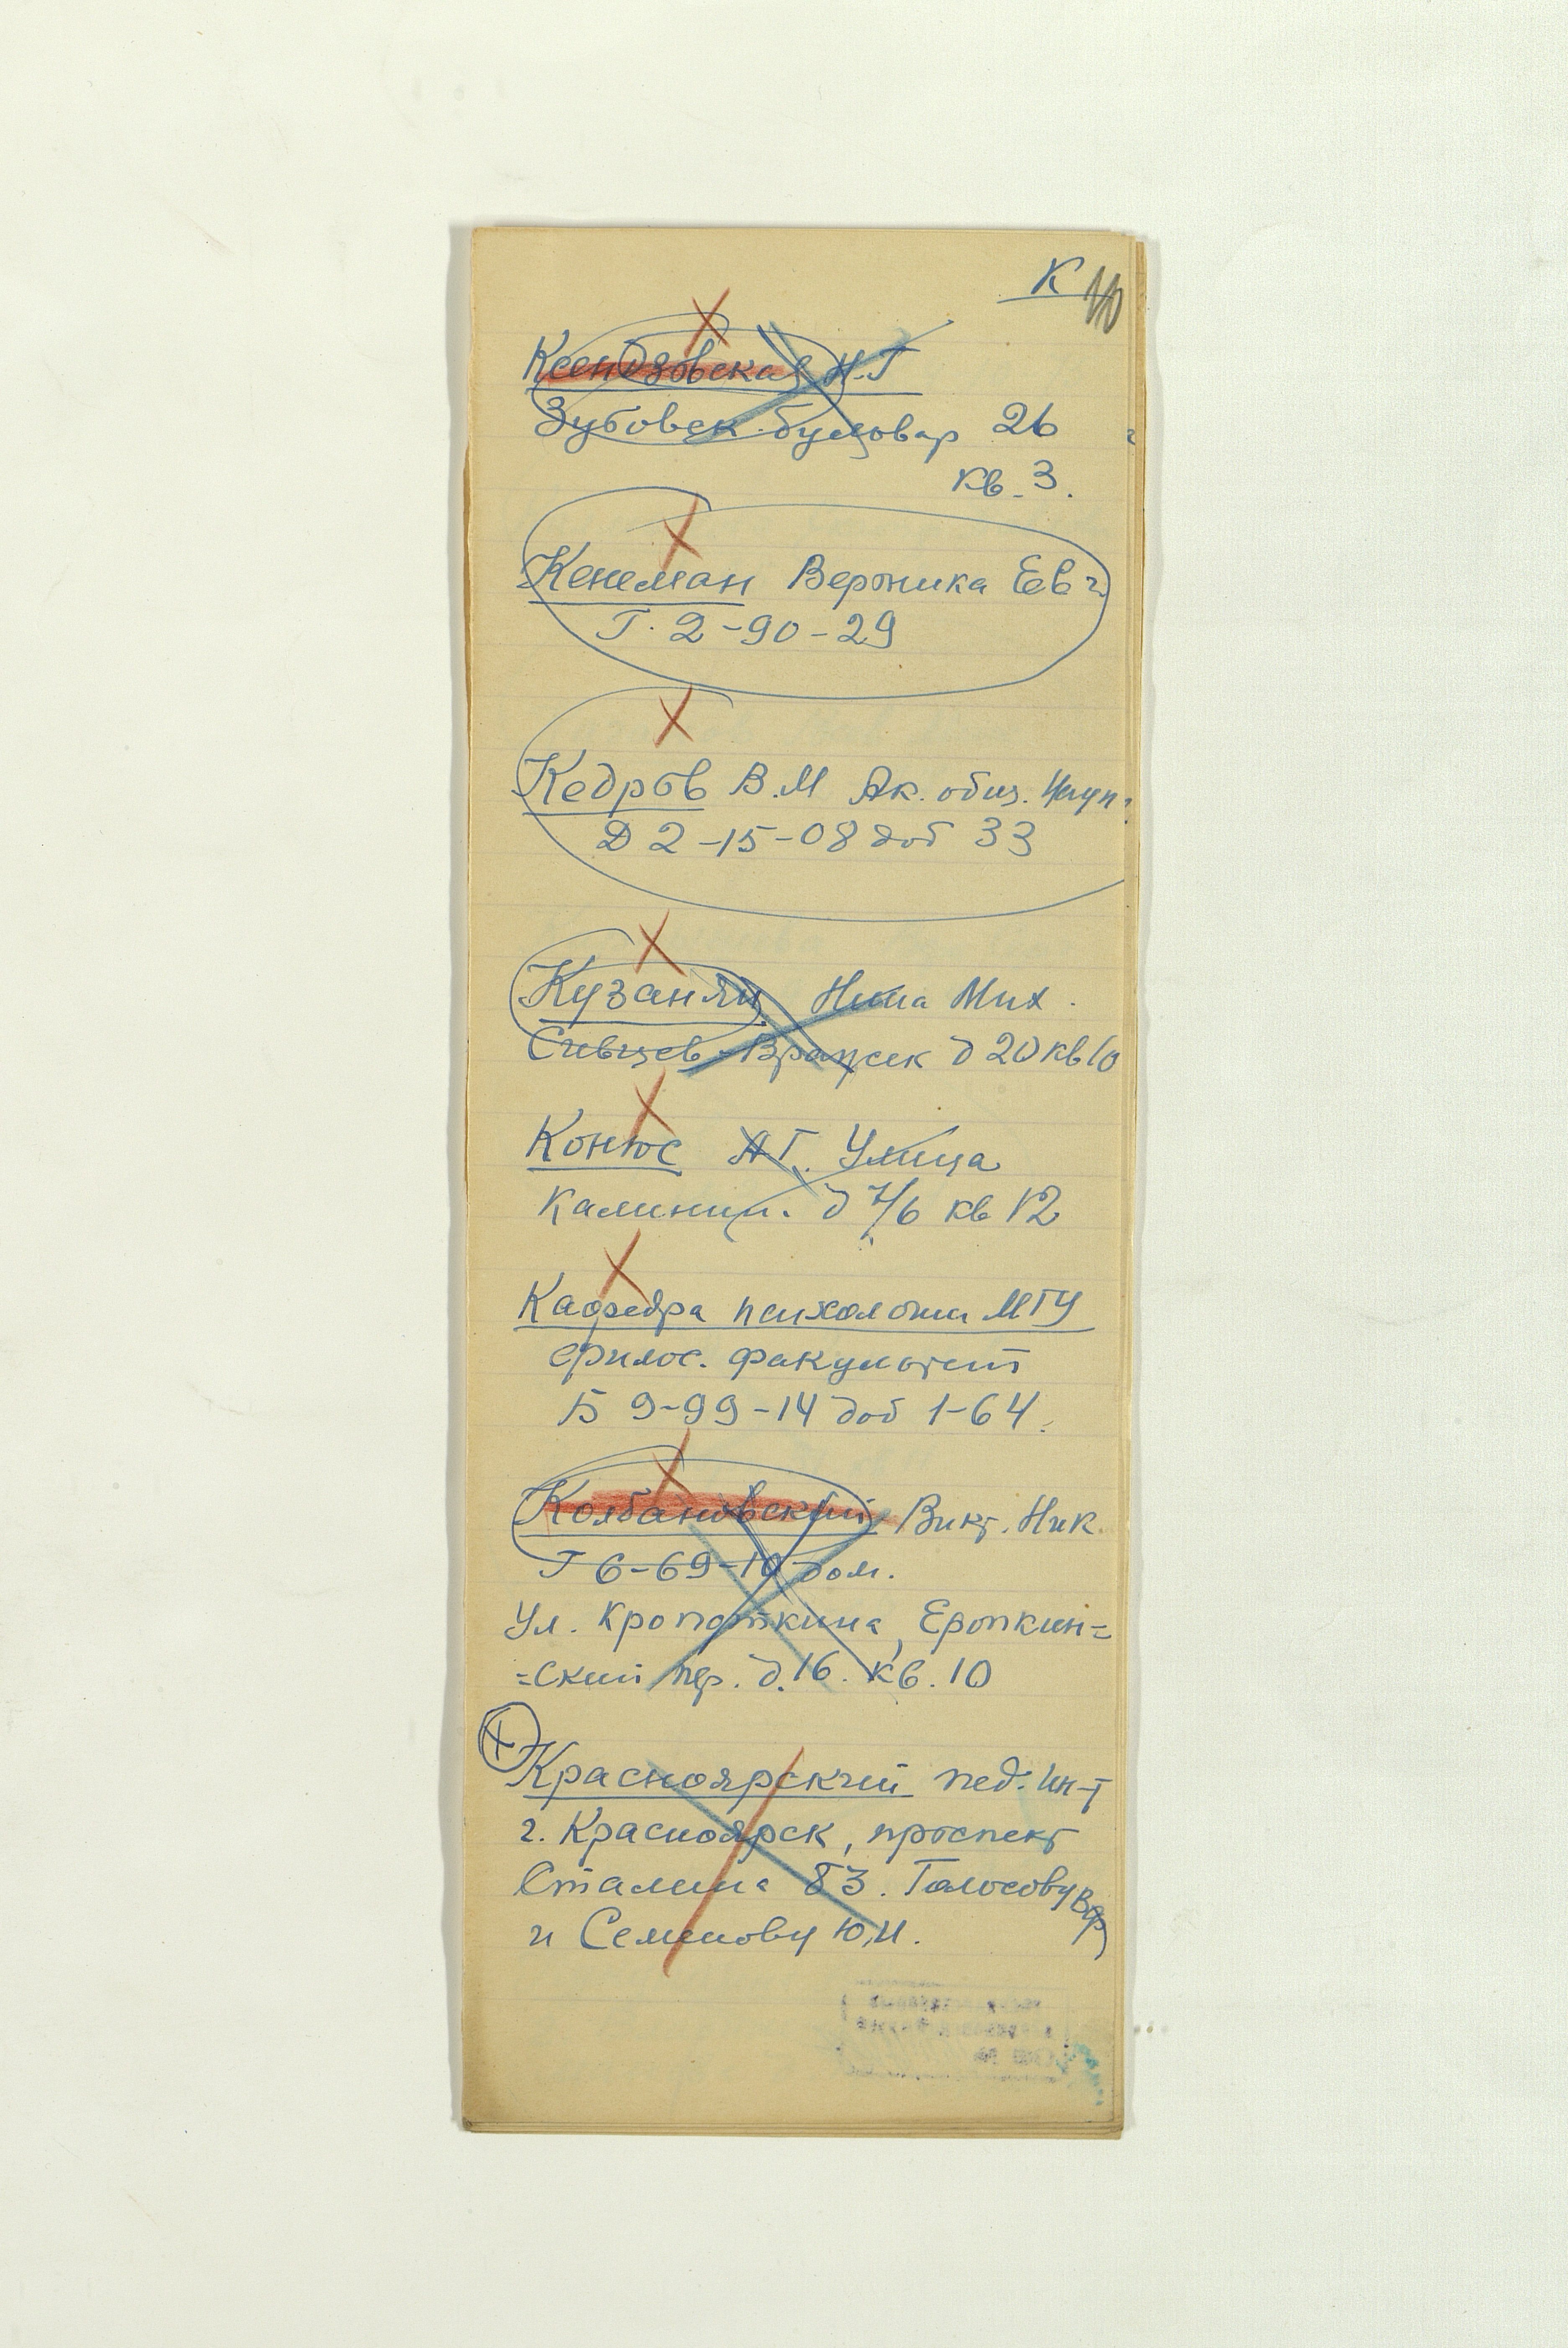 К
10
Ксендзовская Н.Г
Зубовск. бульвар 26
кв. 3.
Кенеман Вероника Евг
Г. 2-90-29
Кедров Б.М Ак. общ. Наук
Д 2-15-08 доб 33
Кузанян Нина Мих.
Сивцев-Вражек д 20 кв 10
Конюс АГ. Улица
Калинин. д 7/6 кв 12
Кафедра психологии МГУ
филос. факультет
Б 9-99-14 доб 1-64.
Колбановский Викт. Ник.
Г 6-69-10 дом.
Ул. Кропоткина, Еропкин=
=ский пер. д. 16. кв. 10
Красноярский пед. Ин-т
г. Красноярск, проспект
Сталина 83. Голосову ВФ
и Семенову Ю.И.